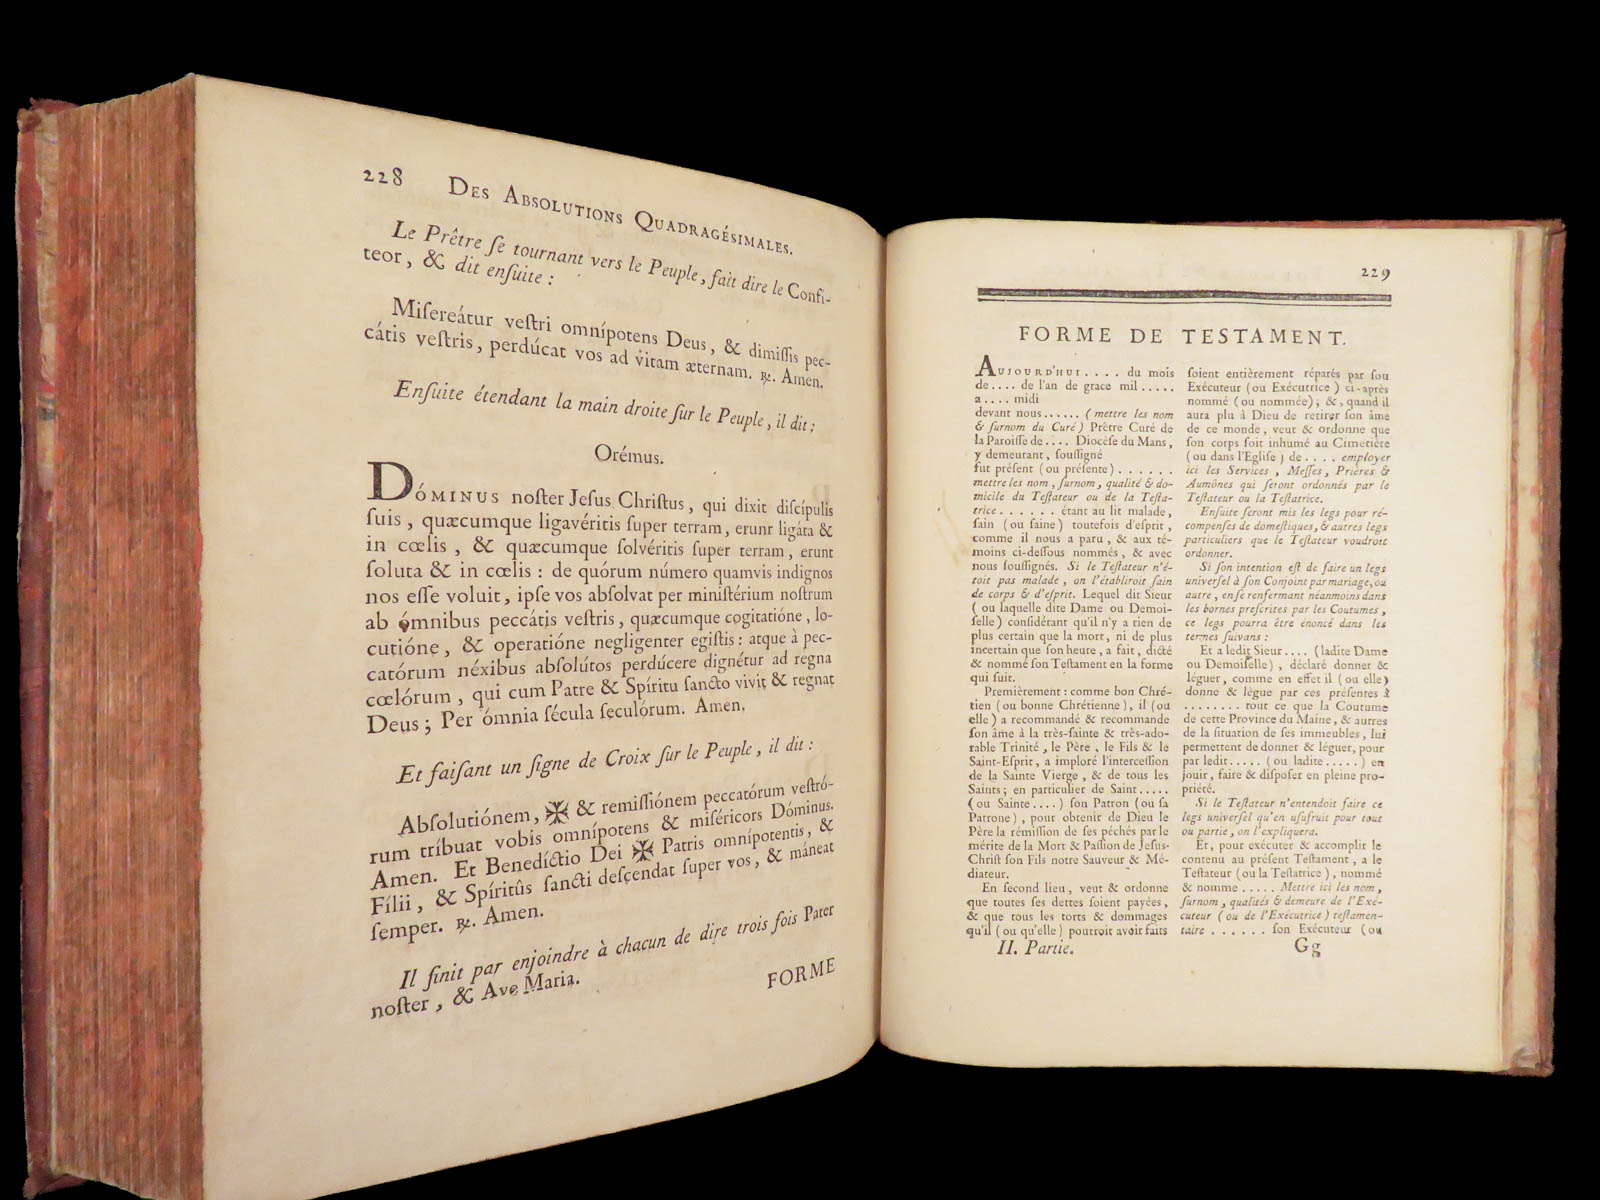 228 DES ABSOLUTIONS QUADRAGÉSIMALES.
Le Prêtre ſe tournant vers le Peuple, fait dire le Confi-
teor, & dit enſuite :
Miſereátur veſtri omnípotens Deus, & dimiſſis pec-
cátis veſtris, perdúcat vos ad vitam æternam. ℟. Amen.
Enſuite étendant la main droite ſur le Peuple, il dit :
Orémus.
DÓMINUS noſter Jeſus Chriſtus, qui dixit diſcípulis
ſuis, quæcumque ligavéritis ſuper terram, erunt ligáta &
in cœlis, & quæcumque ſolvéritis ſuper terram, erunt
ſoluta & in cœlis : de quórum número quamvis indignos
nos eſſe voluit, ipſe vos abſolvat per miniſtérium noſtrum
ab ómnibus peccátis veſtris, quæcumque cogitatióne, lo-
cutióne, & operatióne negligenter egiſtis : atque à pec-
catórum néxibus abſolútos perdúcere dignétur ad regna
cœlórum, qui cum Patre & Spíritu ſancto vivit & regnat
Deus ; Per ómnia ſécula ſeculórum. Amen.
Et faiſant un ſigne de Croix ſur le Peuple, il dit :
Abſolutiónem, ✠ & remiſſiónem peccatórum veſtró-
rum tríbuat vobis omnípotens & miſéricors Dóminus.
Amen. Et Benedíctio Dei ✠ Patris omnipotentis, &
Fílii, & Spíritûs ſancti deſcendat ſuper vos, & máneat
ſemper. ℟. Amen.
Il finit par enjoindre à chacun de dire trois fois Pater
noſter, & Ave Maria.
FORME
229
FORME DE TESTAMENT.
AUJOURD'HUI . . . . du mois
de . . . . de l'an de grace mil . . . . .
a . . . . midi
devant nous . . . . . . (mettre les nom
& ſurnom du Curé) Prêtre Curé de
la Paroiſſe de . . . . Diocéſe du Mans,
y demeurant, ſouſſigné
fut préſent (ou préſente) . . . . . .
mettre les nom, ſurnom, qualité & do-
micile du Teſtateur ou de la Teſta-
trice . . . . . . étant au lit malade,
ſain (ou ſaine) toutefois d'eſprit,
comme il nous a paru, & aux té-
moins ci-deſſous nommés, & avec
nous ſouſſignés. Si le Teſtateur n'é-
toit pas malade, on l'établiroit ſain
de corps & d'eſprit. Lequel dit Sieur
(ou laquelle dite Dame ou Demoi-
ſelle) conſidérant qu'il n'y a rien de
plus certain que la mort, ni de plus
incertain que ſon heure, a fait, dicté
& nommé ſon Teſtament en la forme
qui ſuit.
Premièrement : comme bon Chré-
tien (ou bonne Chrétienne), il (ou
elle) a recommandé & recommande
ſon âme à la très-ſainte & très-ado-
rable Trinité, le Père, le Fils & le
Saint-Eſprit, a imploré l'interceſſion
de la Sainte Vierge, & de tous les
Saints ; en particulier de Saint . . . . .
(ou Sainte . . . .) ſon Patron (ou ſa
Patrone), pour obtenir de Dieu le
Père la rémiſſion de ſes péchés par le
mérite de la Mort & Paſſion de Jeſus-
Chriſt ſon Fils notre Sauveur & Mé-
diateur.
En ſecond lieu, veut & ordonne
que toutes ſes dettes ſoient payées,
& que tous les torts & dommages
qu'il (ou qu'elle) pourroit avoir faits
II. Partie.
ſoient entièrement réparés par ſou
Exécuteur (ou Exécutrice) ci-après
nommé (ou nommée) ; &, quand il
aura plu à Dieu de retirer ſon âme
de ce monde, veut & ordonne que
ſon corps ſoit inhumé au Cimetière
(ou dans l'Egliſe) de . . . . employer
ici les Services, Meſſes, Prières &
Aumônes qui ſeront ordonnés par le
Teſtateur ou la Teſtatrice.
Enſuite ſeront mis les legs pour ré-
compenſes de domeſtiques, & autres legs
particuliers que le Teſtateur voudroit
ordonner.
Si ſon intention eſt de faire un legs
univerſel à ſon Conjoint par mariage, ou
autre, en ſe renfermant néanmoins dans
les bornes preſcrites par les Coutumes,
ce legs pourra être énoncé dans les
termes ſuivans :
Et a ledit Sieur . . . . (ladite Dame
ou Demoiſelle), déclaré donner &
léguer, comme en effet il (ou elle)
donne & légue par ces préſentes à
. . . . . . . . tout ce que la Coutume
de cette Province du Maine, & autres
de la ſituation de ſes immeubles, lui
permettent de donner & léguer, pour
par ledit . . . . . (ou ladite . . . . .) en
jouir, faire & diſpoſer en pleine pro-
priété.
Si le Teſtateur n'entendoit faire ce
legs univerſel qu'en uſufruit pour tout
ou partie, on l'expliquera.
Et, pour exécuter & accomplir le
contenu au préſent Teſtament, a le
Teſtateur (ou la Teſtatrice), nommé
& nomme . . . . . Mettre ici les nom,
ſurnom, qualités & demeure de l'Exé-
cuteur (ou de l'Exécutrice) teſtamen-
taire . . . . . . ſon Exécuteur (ou
Gg